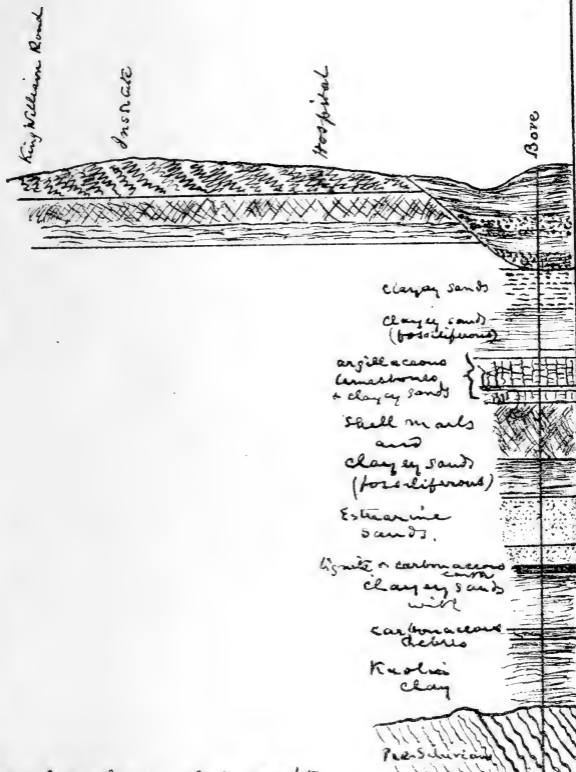 King William Road
Institute
Hospital
Bore
Clayey sands
Clayey sands
(fossiliferous)
argillaceous
limestones
& clayey sands
Shell marls
and
clayey sands
(fossiliferous)
Estuarine
Sands.
Lignite & carbonaceous
earth
Clayey sands
with
carbonaceous
debris
Kaolin
clay
Pre-Silurian